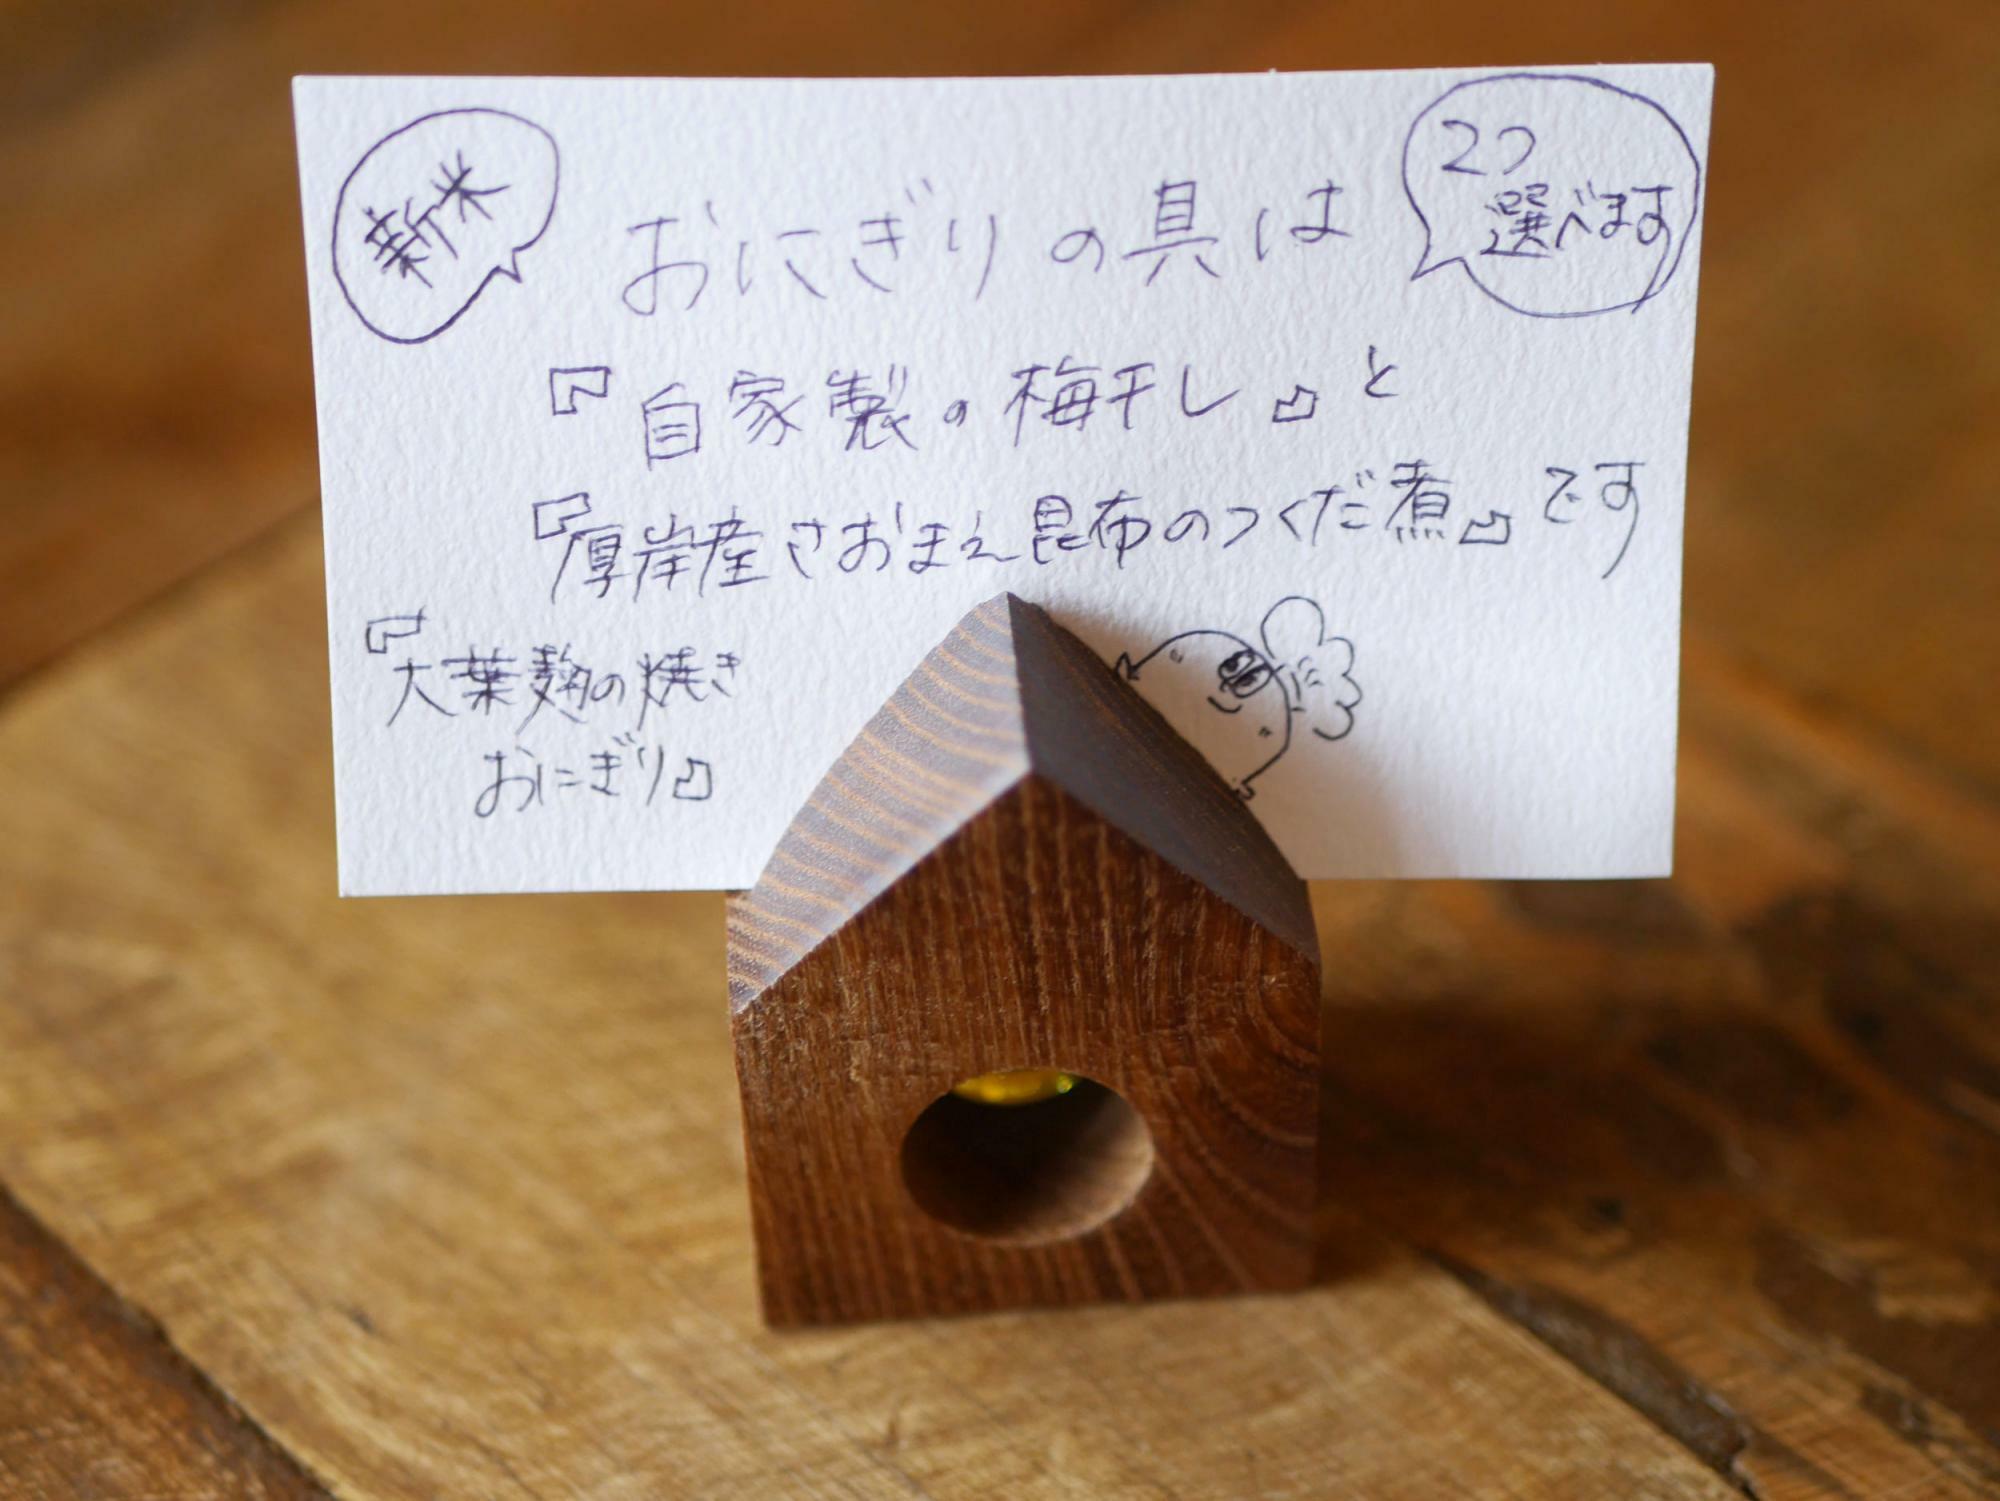 新米
おにぎりの具は
2つ
選べます
『自家製の梅干し』と
『厚岸産さおまえ昆布のつくだ煮』です
『大葉麹の焼き
おにぎり』